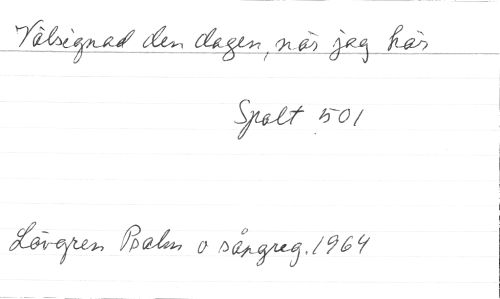 Välsignad den dagen, när jag här
Spalt 501
Lövgren Psalm o sångreg. 1964